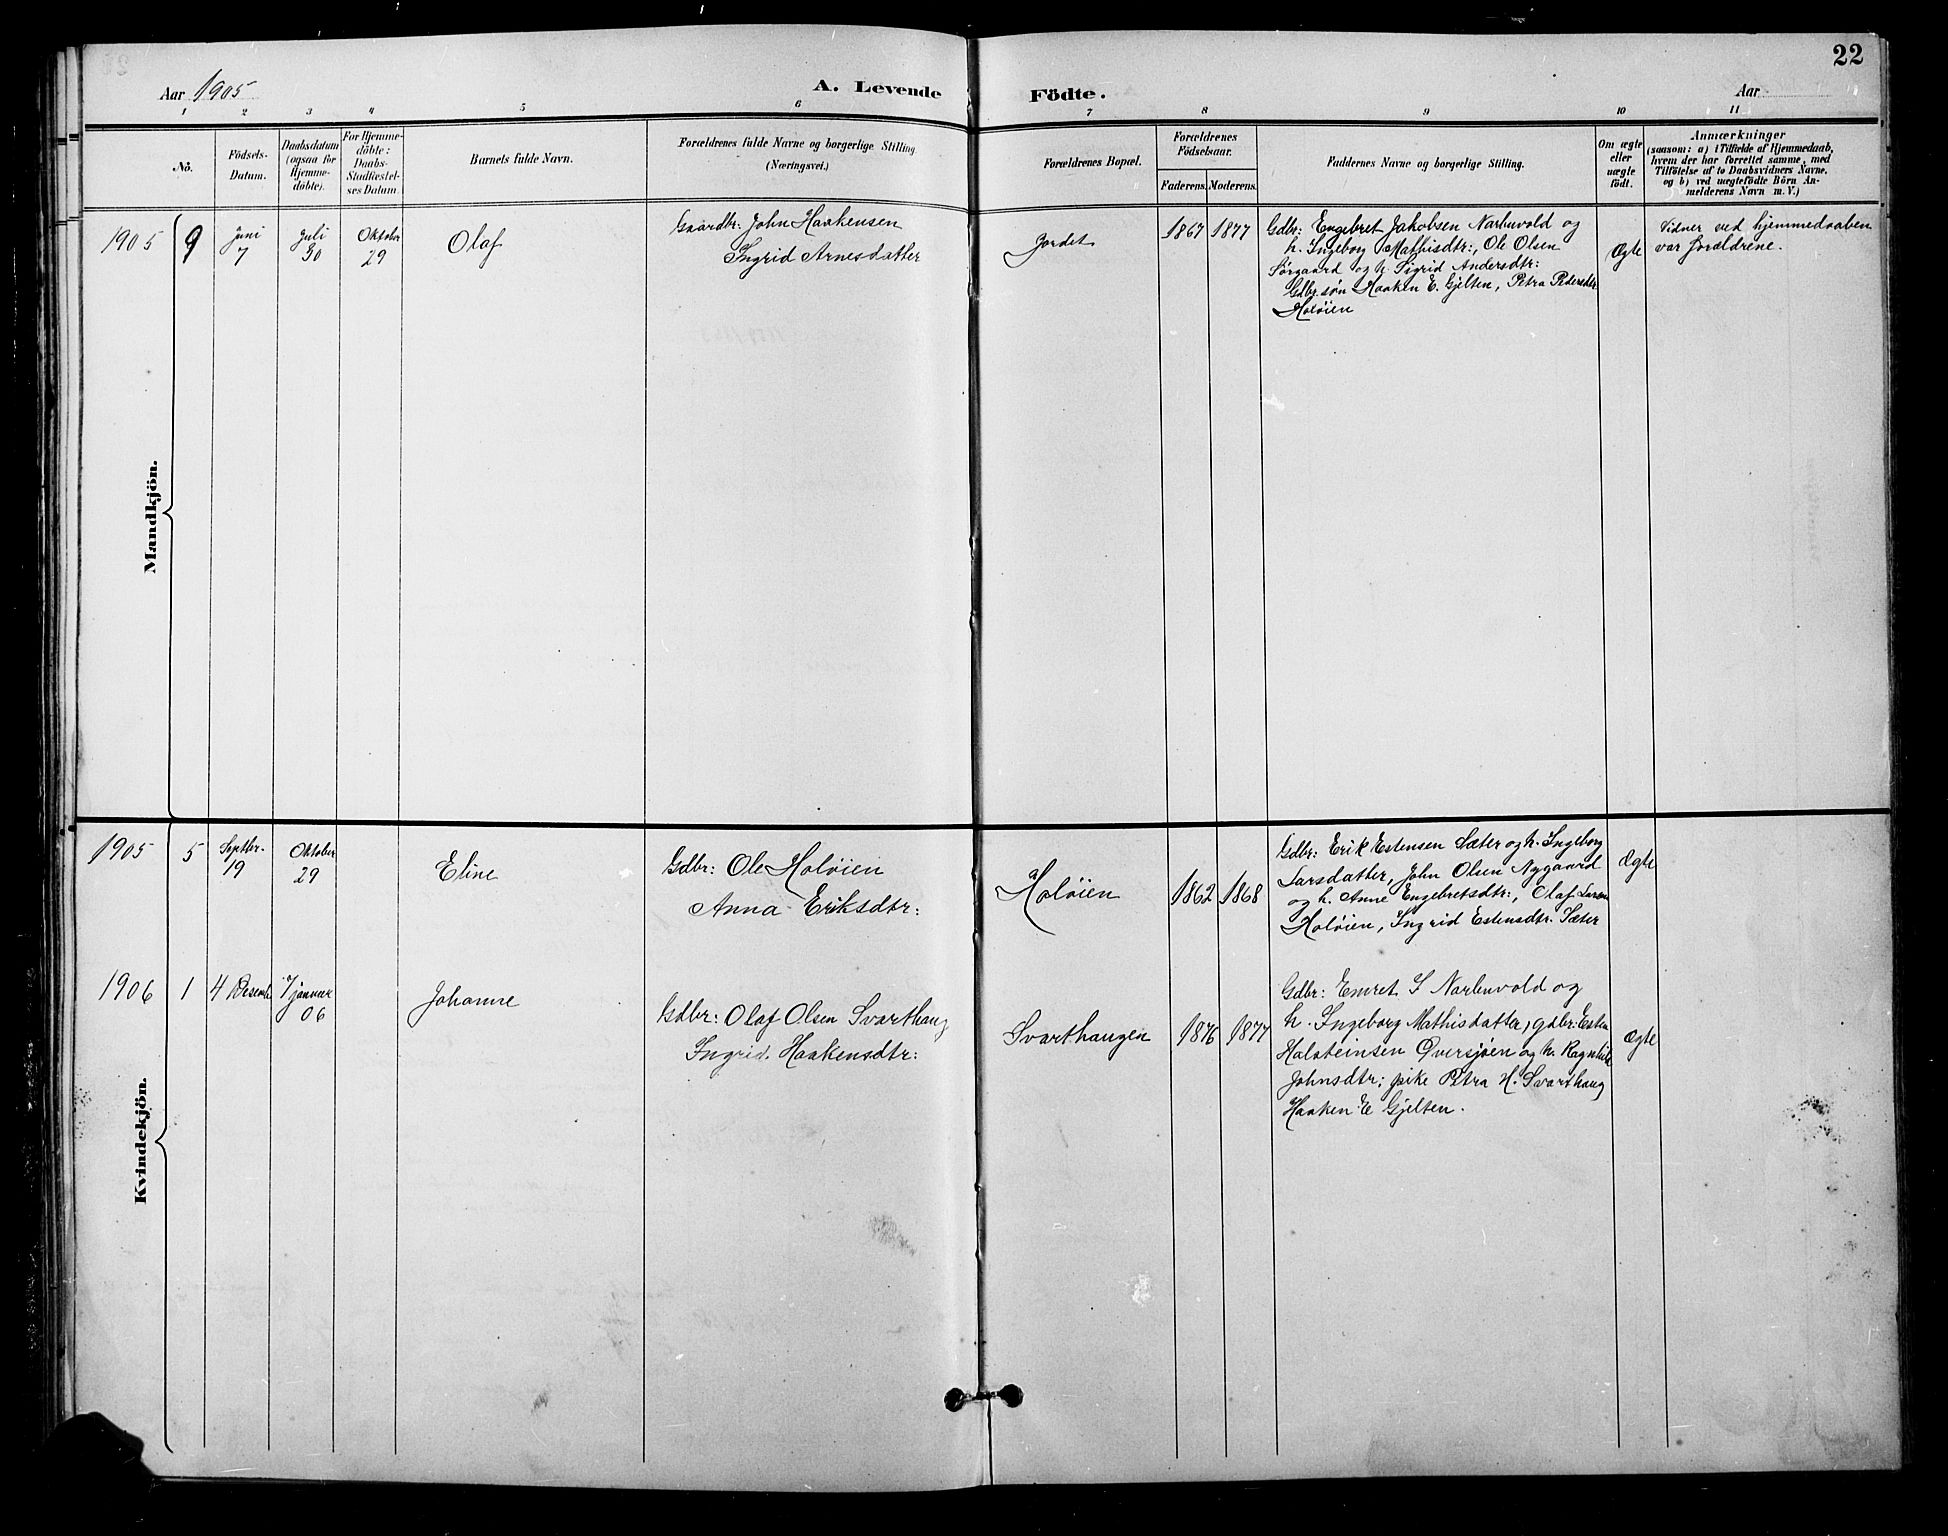 22
Aar 1905
A. Levende Födte.
Aar
1 2 3 4 5 6 7 8 9 10 11
No.
Födsels-
Datum.
Daabsdatum
(ogsaa for
Hjemme-
döbte).
For Hjemme-
döbte:
Daabs-
Stadfæstel-
ses Datum.
Barnets fulde Navn.
Forældrenes fulde Navne og borgerlige Stilling
(Næringsvei.)
Forældrenes Bopæl.
Forældrenes
Födselsaar.
Faderens. Moderens.
Faddernes Navne og borgerlige Stilling.
Om ægte
eller
uægte
födt.
Anmærkninger
(saasom: a) i Tilfælde af Hjemmedaab,
hvem der har forrettet samme, med
Tilföielse af to Daabsvidners Navne,
og b) ved uægtefödte Börn An-
melderens Navn m. V.)
Mandkjön.
1905 9
Juni
7
Juli
30
Oktober
29
Olaf
Gaardbr: John Haakensen
Ingrid Arnesdatter
Jordet
1867 1877
Gdbr: Engebret Jakobsen Narbuvold og
h. Ingeborg Mathisdtr:, Ole Olsen
Sørgaard og h. Sigrid Andersdtr:
Gdbr. søn Haaken E. Gjelten, Petra Pedersdtr
Holøien
Ægte
Vidner ved hjemmedaaben
var forældrene.
Kvindekjön.
1905 5
Septbr.
19
Oktober
29
Eline
Gdbr: Ole Holøien
Anna Eriksdtr:
Holøien
1862 1868
Gdbr: Erik Estensen Sæter og h. Ingeborg
Larsdatter, John Olsen Nygaard
og h. Anne Engebretsdtr:, Olaf Larsen
Holøien, Ingrid Estensdtr. Sæter
Ægte
1906 1
4 Desemb.
7 januar
06
Johanne
Gdbr: Olaf Olsen Svarthaug
Ingrid Haakensdtr:
Svarthaugen
1876 1877
Gdbr: Emret J Narbuvold og
h. Ingeborg Mathisdatter, gdbr: Esten
Halsteinsen Øversjøen og h. Ragnhild
Johnsdtr; pike Petra H. Svarthaug
Haaken E Gjelten.
Ægte